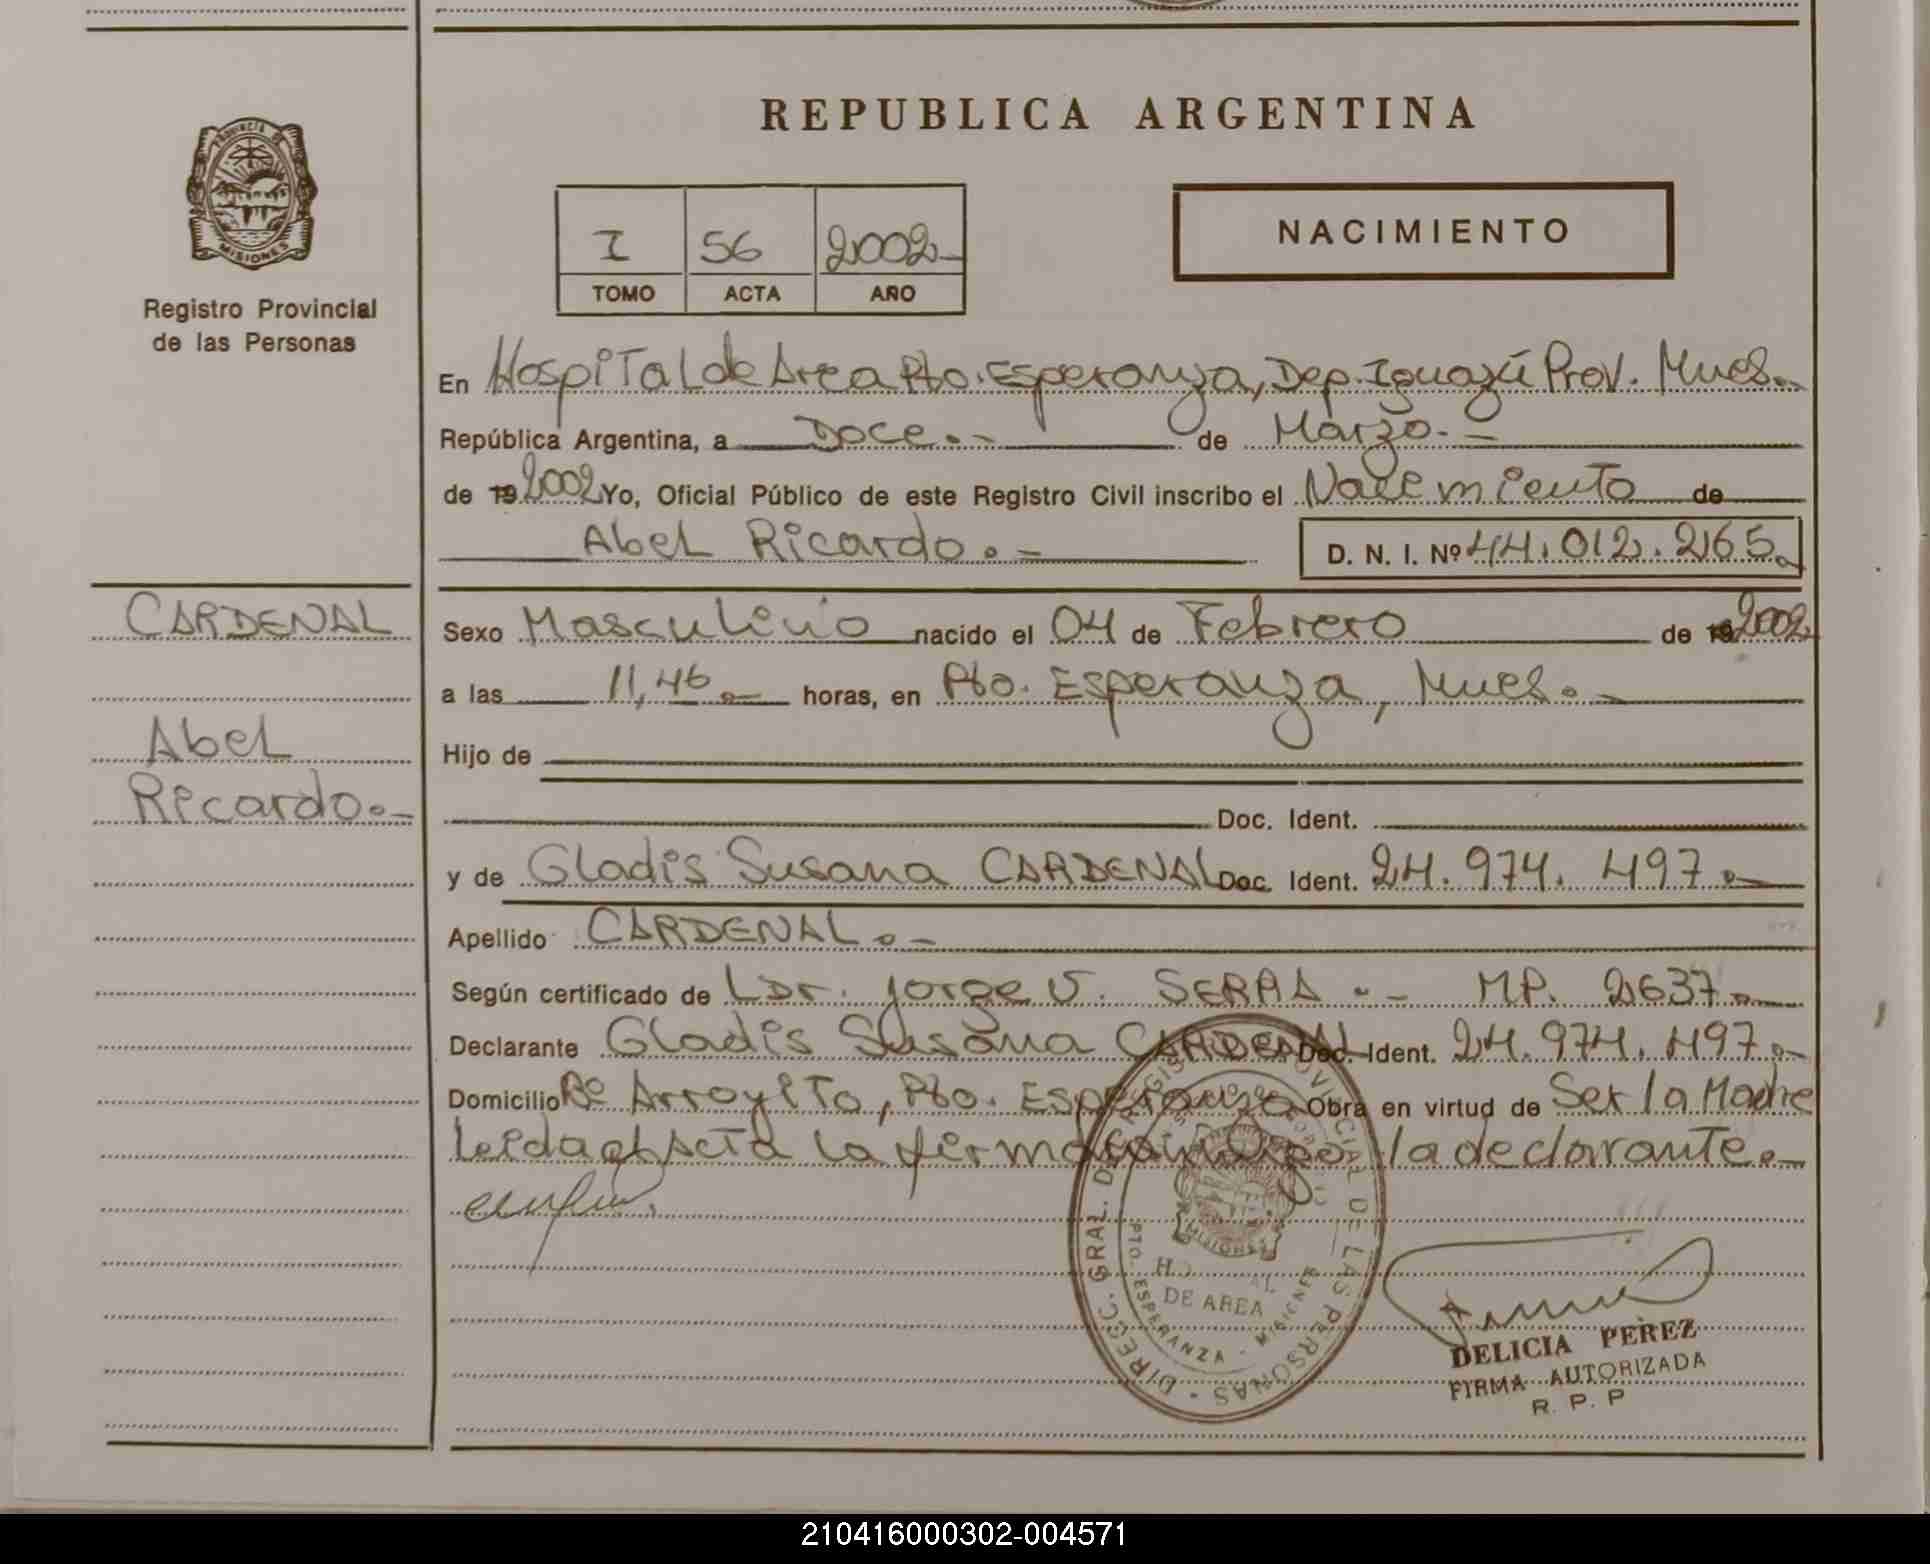 REPUBLICA ARGENTINA
PROVINCIA DE
MISIONES
Registro Provincial
de las Personas
I 56 2002
TOMO ACTA AÑO
NACIMIENTO
En Hospital de Area Pto. Esperanza, Dep. Iguazú Prov. Mnes.-
República Argentina, a Doce.- de Marzo.-
de 19 2002 Yo, Oficial Público de este Registro Civil inscribo el Nacimiento de
Abel Ricardo.- D. N. I. Nº 44.012.265.
CARDENAL
Abel
Ricardo.-
Sexo Masculino nacido el 04 de Febrero de 19 2002
a las 11,46.- horas, en Pto. Esperanza, Mnes.-
Hijo de
Doc. Ident.
y de Gladis Susana CARDENAL Doc. Ident. 24.974.497.-
Apellido CARDENAL.-
Según certificado de L Dr. Jorge V. SERRA.- MP. 2637.-
Declarante Gladis Susana CARDENAL Doc. Ident. 24.974.497.-
Domicilio Bº Arroyito, Pto. Esperanza Obra en virtud de Ser la Madre
Leida el Acta la firma la declarante.-
DIRECC. GRAL. DEL REGISTRO PROVINCIAL DE LAS PERSONAS
MISIONES
HOSPITAL
DE AREA
PTO. ESPERANZA - MISIONES
DELICIA PEREZ
FIRMA AUTORIZADA
R. P. P
210416000302-004571